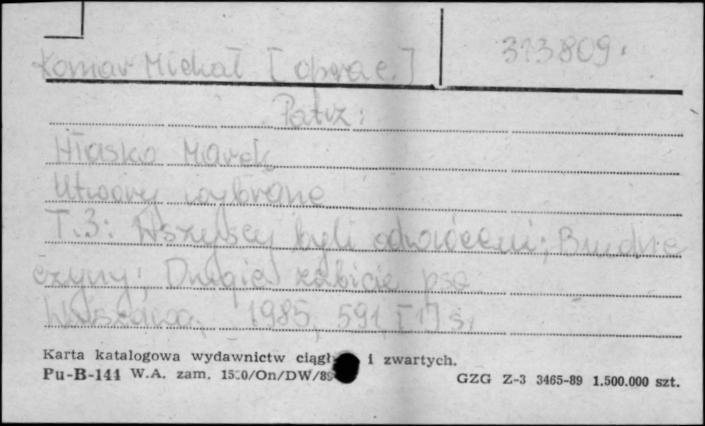 Komar Michał [oprac.] 313809.
Patrz:
Hłasko Marek
Utwory wybrane
T.3: Wszyscy byli odwróceni; Brudne
czyny; Drugie zabicie psa
Warszawa, 1985, 591, [1] s.
Karta katalogowa wydawnictw i zwartych.
Pu-B-144 W.A. zam. GZG Z-3 3465-89 1.500.000 szt.